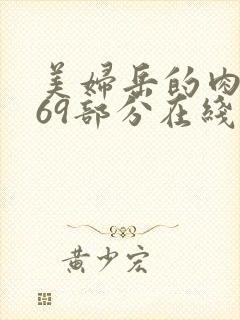 美婦岳的肉
69部分在綫
黄少宏